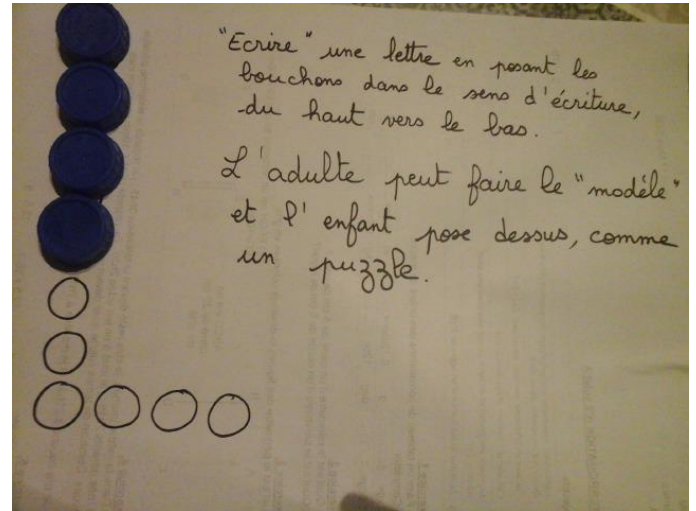 "Ecrire" une lettre en posant les
bouchons dans le sens d'écriture,
du haut vers le bas.
L'adulte peut faire le "modèle"
et l'enfant pose dessus, comme
un puzzle.